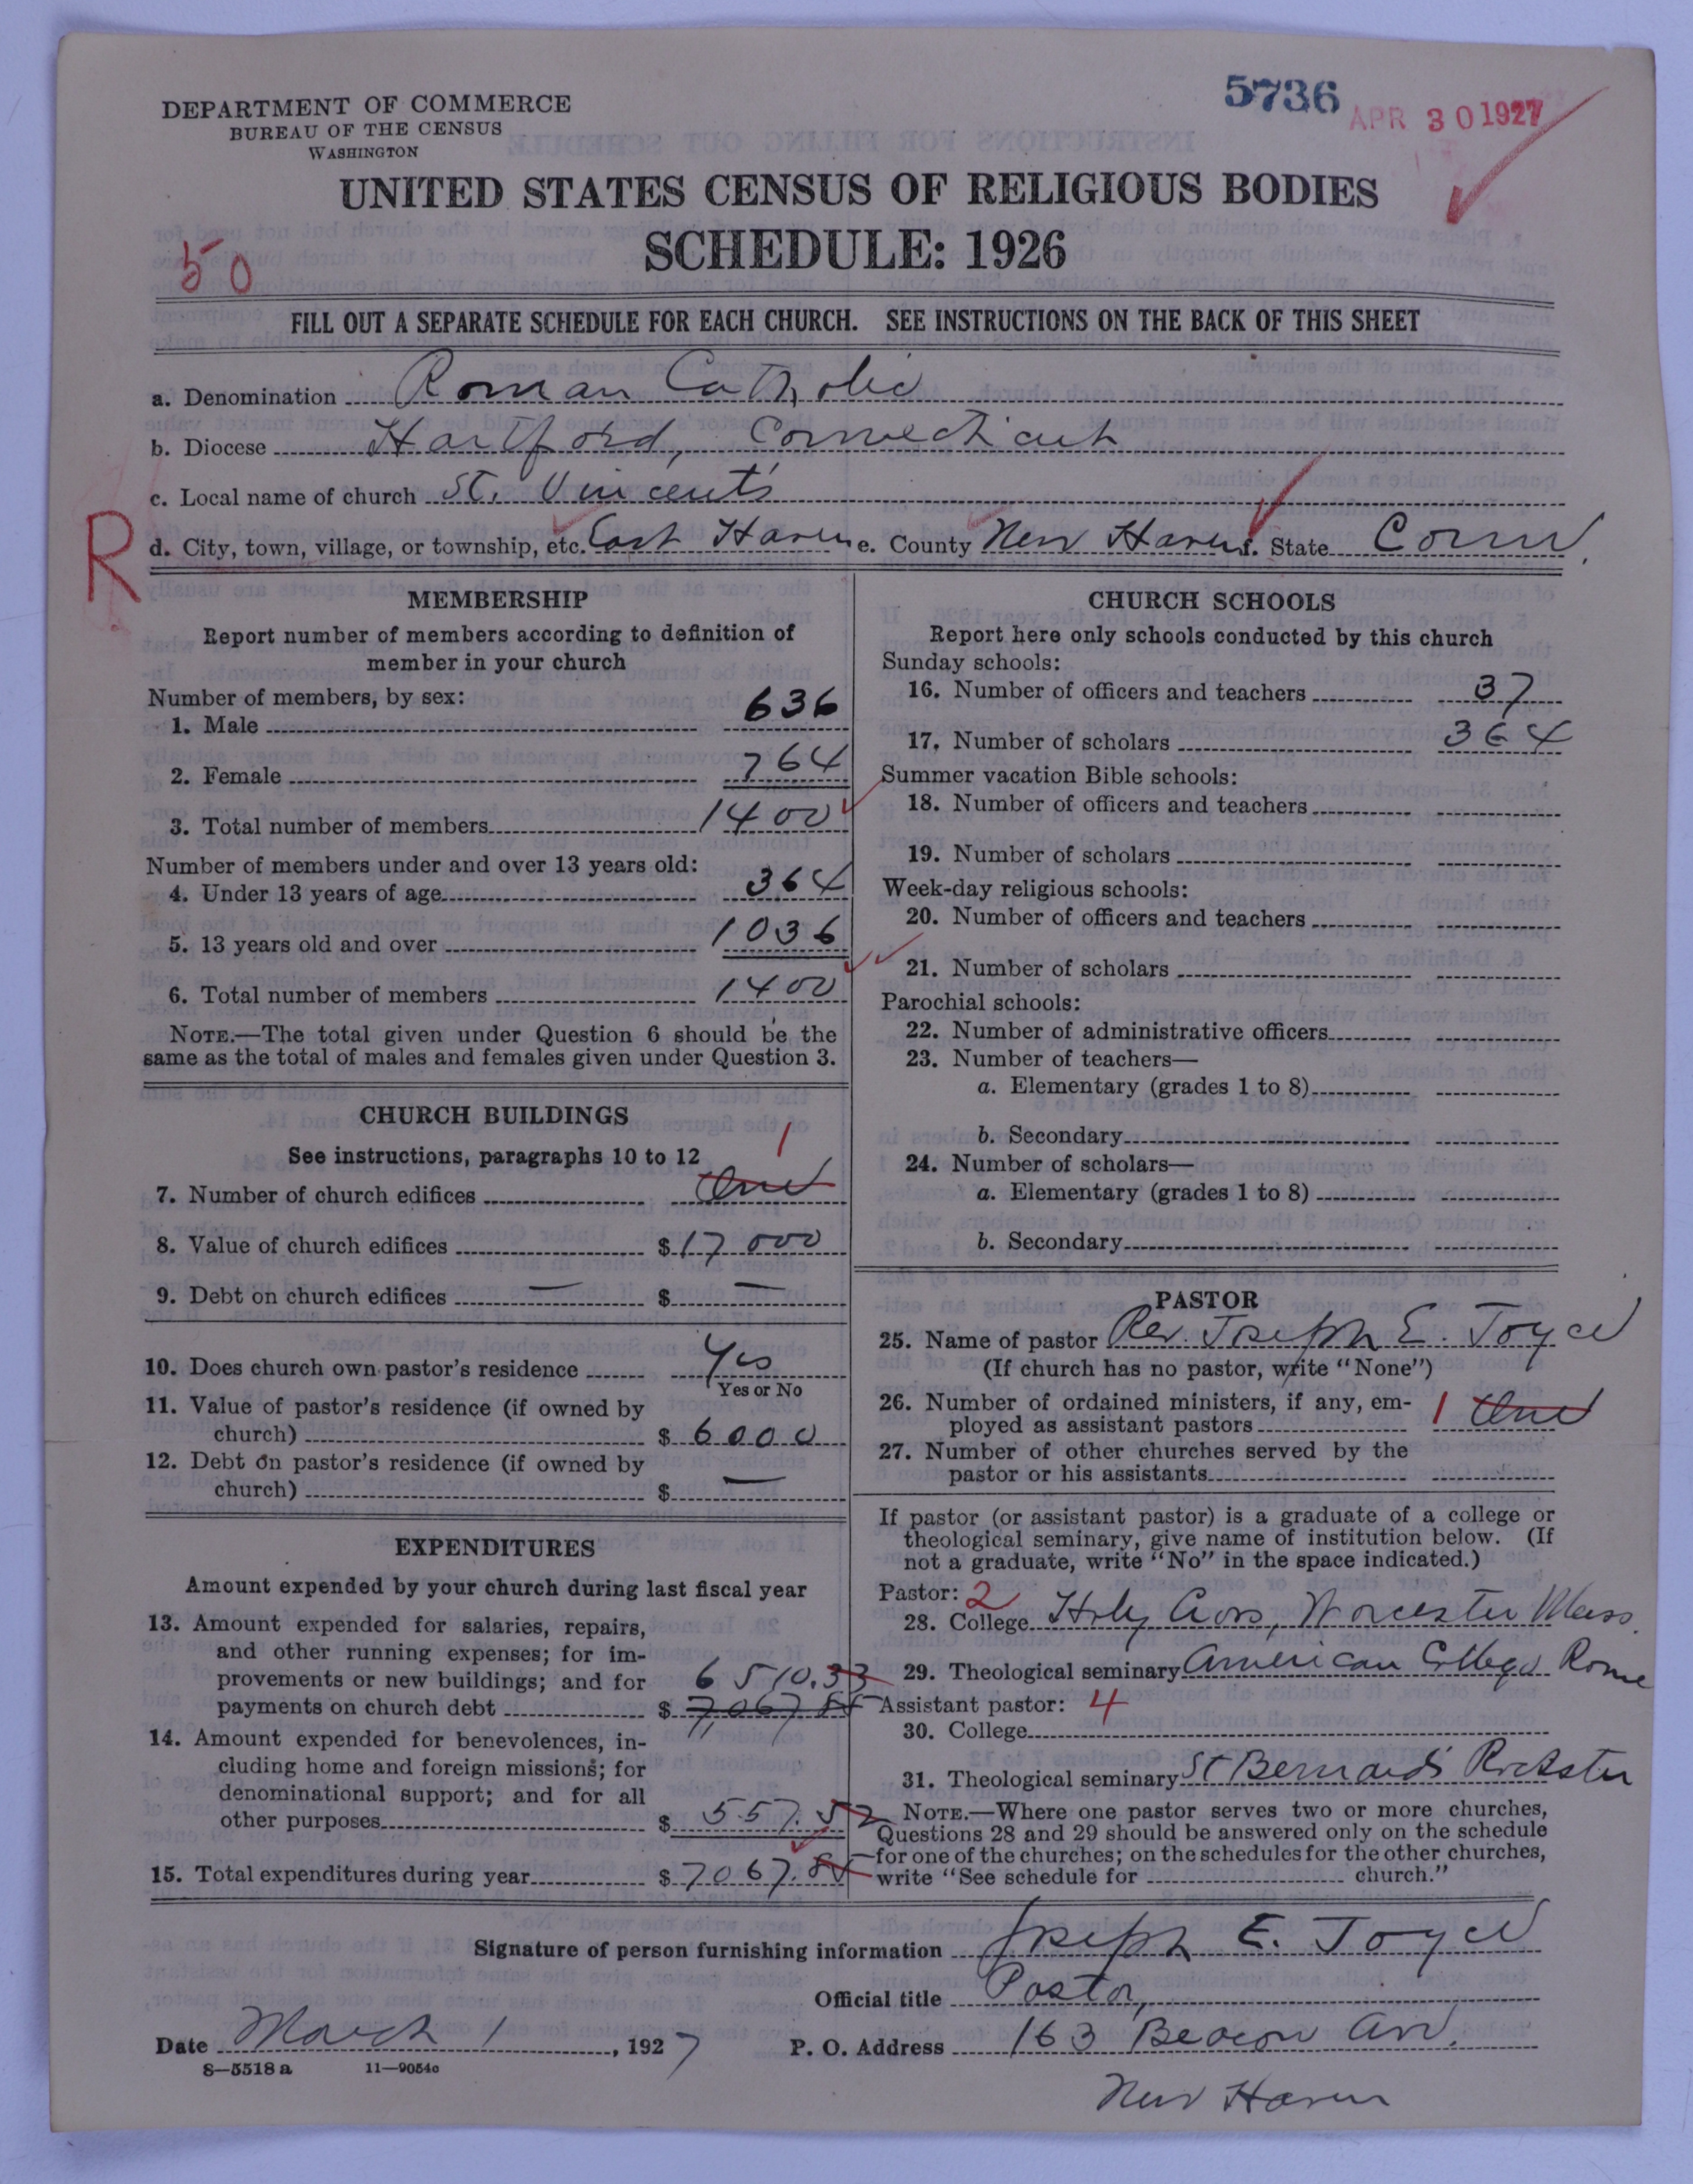 5736
APR 30 1927
DEPARTMENT OF COMMERCE
BUREAU OF THE CENSUS
WASHINGTON
UNITED STATES CENSUS OF RELIGIOUS BODIES
SCHEDULE: 1926
50
FILL OUT A SEPARATE SCHEDULE FOR EACH CHURCH. SEE INSTRUCTIONS ON THE BACK OF THIS SHEET
a. Denomination Roman Catholic
b. Diocese Hartford, Connecticut
c. Local name of church St. Vincent's
R
d. City, town, village, or township, etc. East Haven e. County New Haven f. State Conn.
MEMBERSHIP
Report number of members according to definition of
member in your church
Number of members, by sex:
1. Male 636
2. Female 764
3. Total number of members 1400
Number of members under and over 13 years old:
4. Under 13 years of age 364
5. 13 years old and over 1036
6. Total number of members 1400
NOTE.—The total given under Question 6 should be the
same as the total of males and females given under Question 3.
CHURCH BUILDINGS
See instructions, paragraphs 10 to 12
7. Number of church edifices One 1
8. Value of church edifices $ 17 000
9. Debt on church edifices — $ —
10. Does church own pastor's residence Yes
Yes or No
11. Value of pastor's residence (if owned by
church) $ 6000
12. Debt on pastor's residence (if owned by
church) $ —
EXPENDITURES
Amount expended by your church during last fiscal year
13. Amount expended for salaries, repairs,
and other running expenses; for im-
provements or new buildings; and for 6510.33
payments on church debt $ 7,067 85
14. Amount expended for benevolences, in-
cluding home and foreign missions; for
denominational support; and for all
other purposes $ 557.52
15. Total expenditures during year $ 7067.85
CHURCH SCHOOLS
Report here only schools conducted by this church
Sunday schools:
16. Number of officers and teachers 37
17. Number of scholars 364
Summer vacation Bible schools:
18. Number of officers and teachers
19. Number of scholars
Week-day religious schools:
20. Number of officers and teachers
21. Number of scholars
Parochial schools:
22. Number of administrative officers
23. Number of teachers—
a. Elementary (grades 1 to 8)
b. Secondary
24. Number of scholars—
a. Elementary (grades 1 to 8)
b. Secondary
PASTOR
25. Name of pastor Rev. Joseph E. Joyce
(If church has no pastor, write "None")
26. Number of ordained ministers, if any, em-
ployed as assistant pastors 1 One
27. Number of other churches served by the
pastor or his assistants
If pastor (or assistant pastor) is a graduate of a college or
theological seminary, give name of institution below. (If
not a graduate, write "No" in the space indicated.)
Pastor: 2
28. College Holy Cross, Worcester Mass.
29. Theological seminary American College Rome
Assistant pastor: 4
30. College
31. Theological seminary St Bernard's Rochester
NOTE.—Where one pastor serves two or more churches,
Questions 28 and 29 should be answered only on the schedule
for one of the churches; on the schedules for the other churches,
write "See schedule for church."
Signature of person furnishing information Joseph E. Joyce
Official title Pastor,
Date March 1, 1927 P. O. Address 163 Beacon Av.
8—5518 a 11—9054c
New Haven